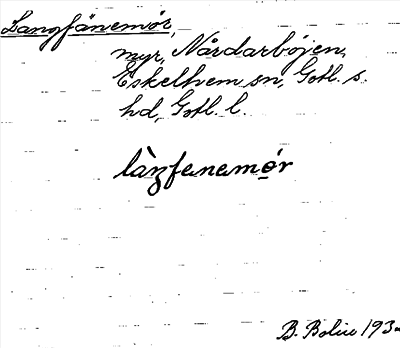 Langfänemör,
myr, Nårdarböjen,
Eskelhem sn, Gotl. s.
hd, Gotl. l.
làŋfenemo̤r
B. Bolin 193